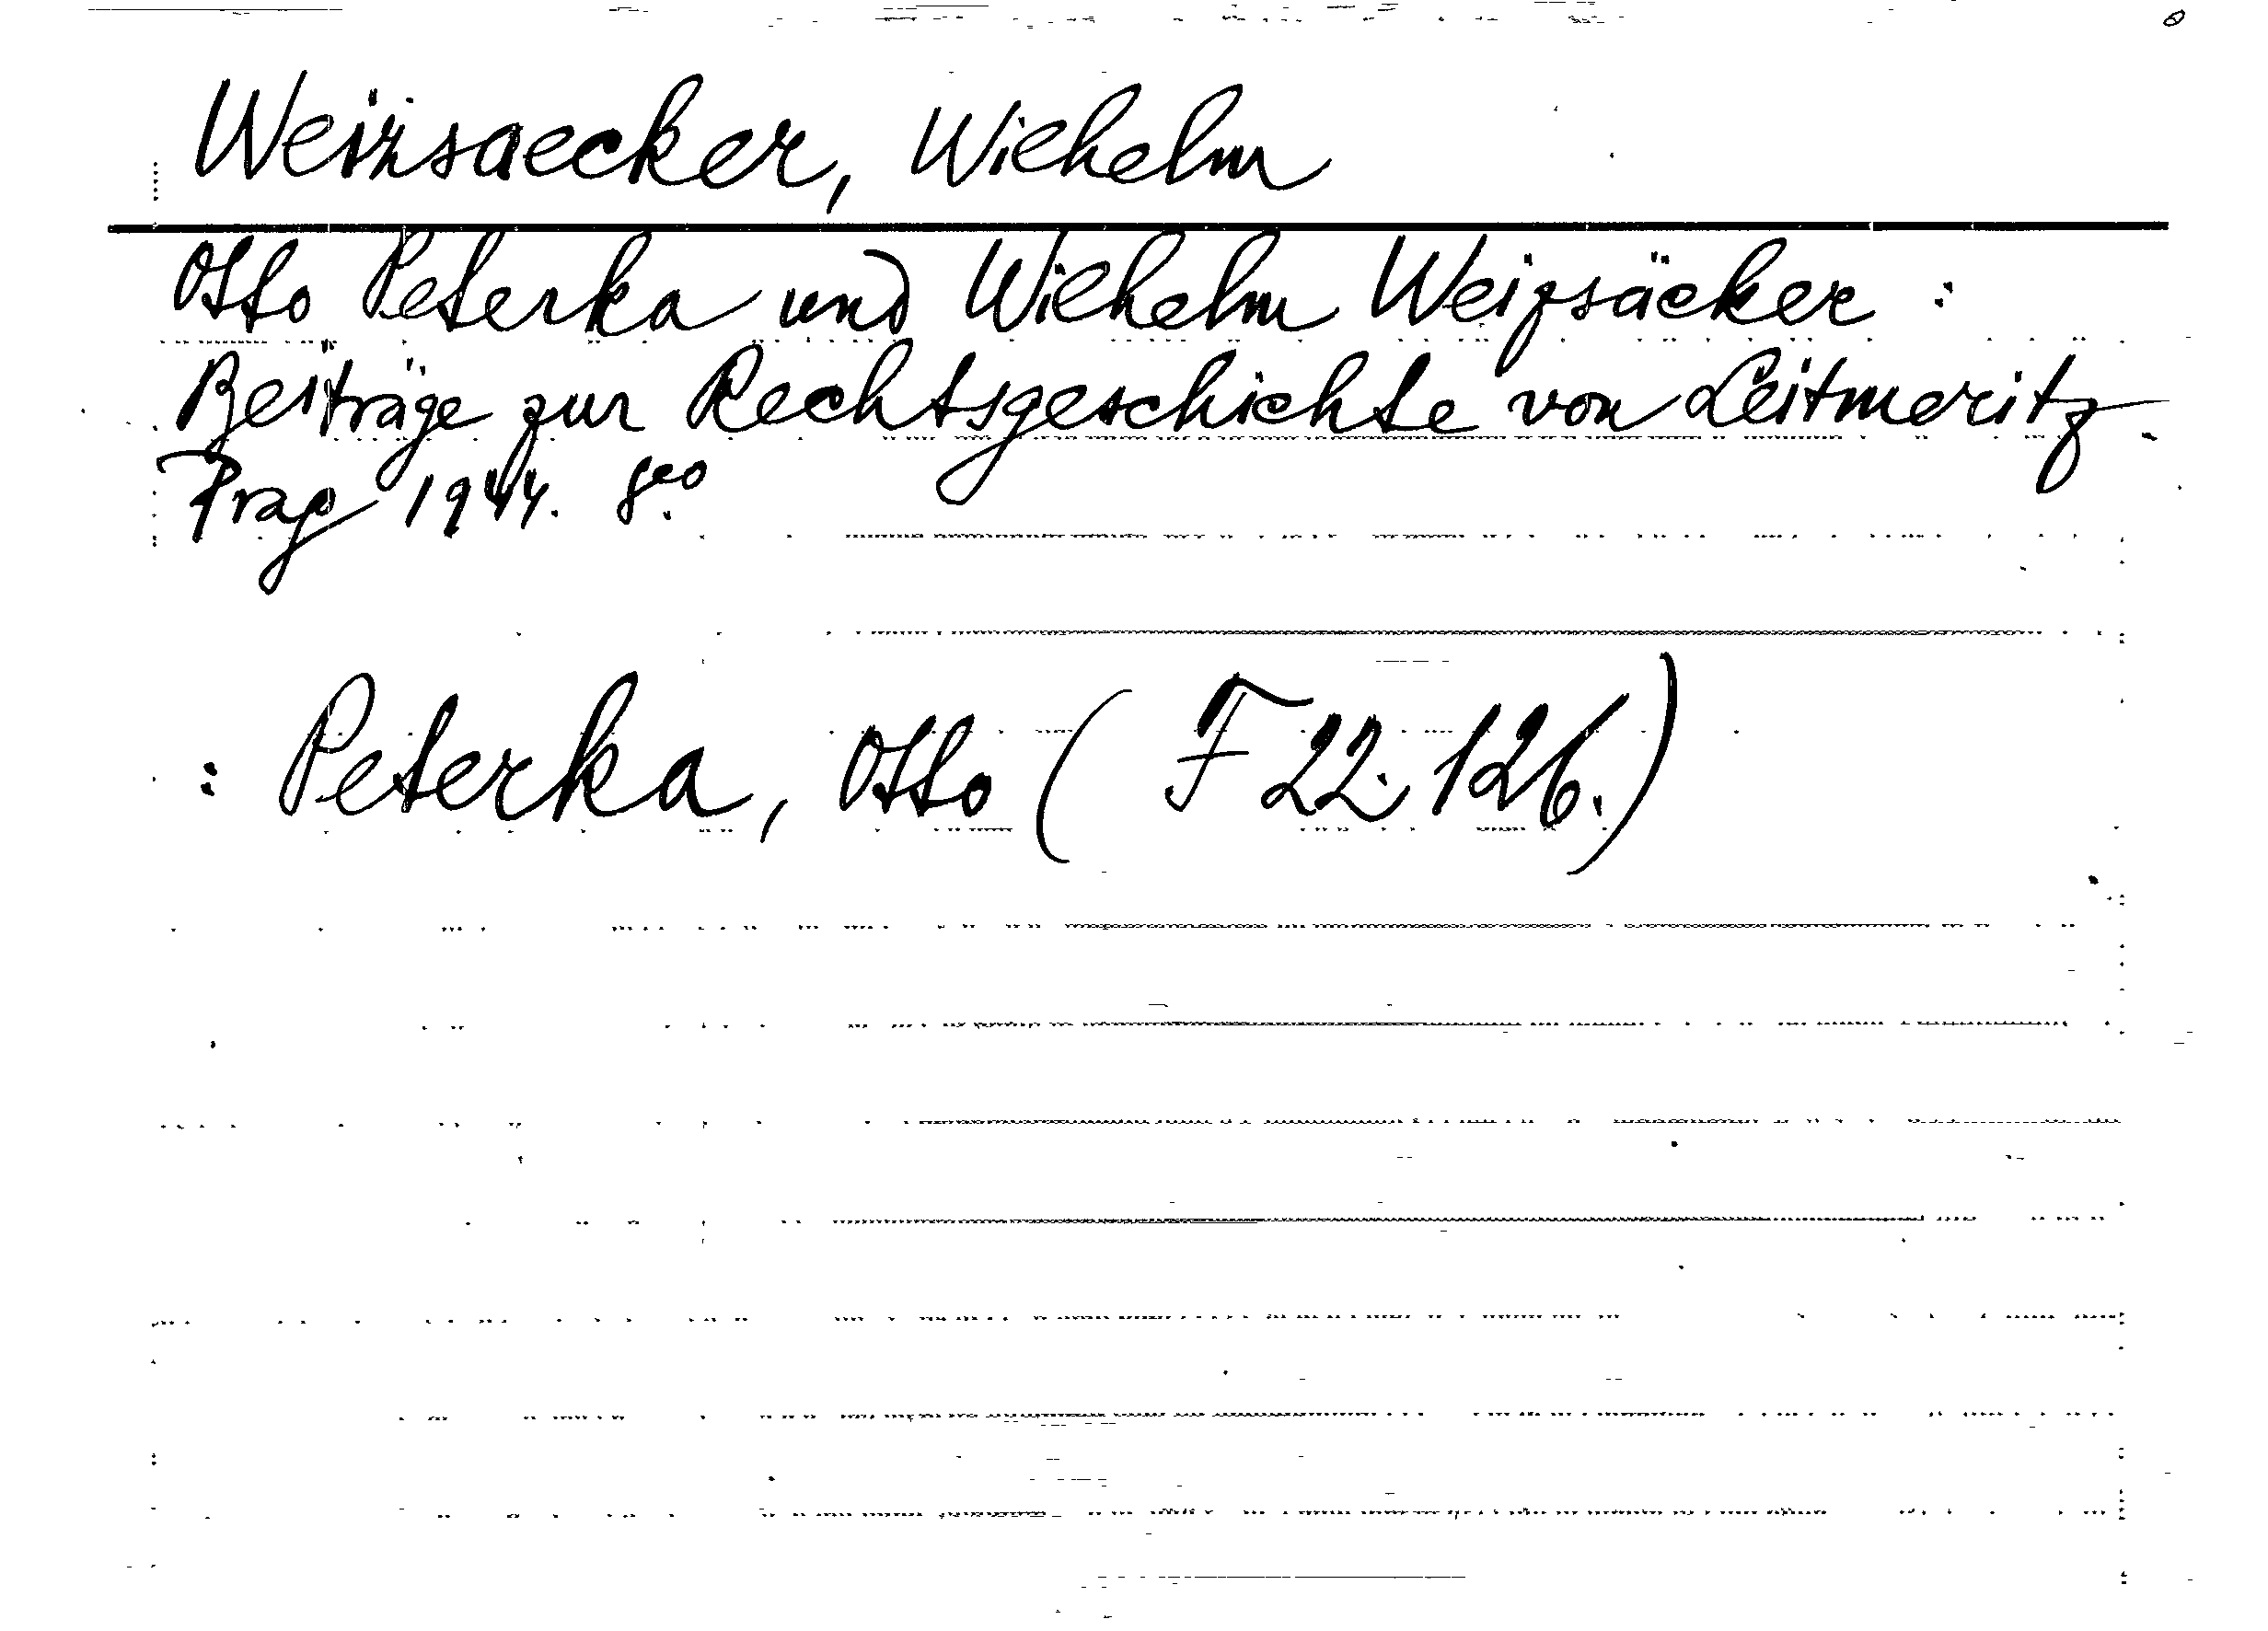 Weizsaecker, Wilhelm
Otto Peterka und Wilhelm Weizsäcker :
Beiträge zur Rechtsgeschichte von Leitmeritz.
Prag 1944. 8vo
: Peterka, Otto ( F 22.126.)